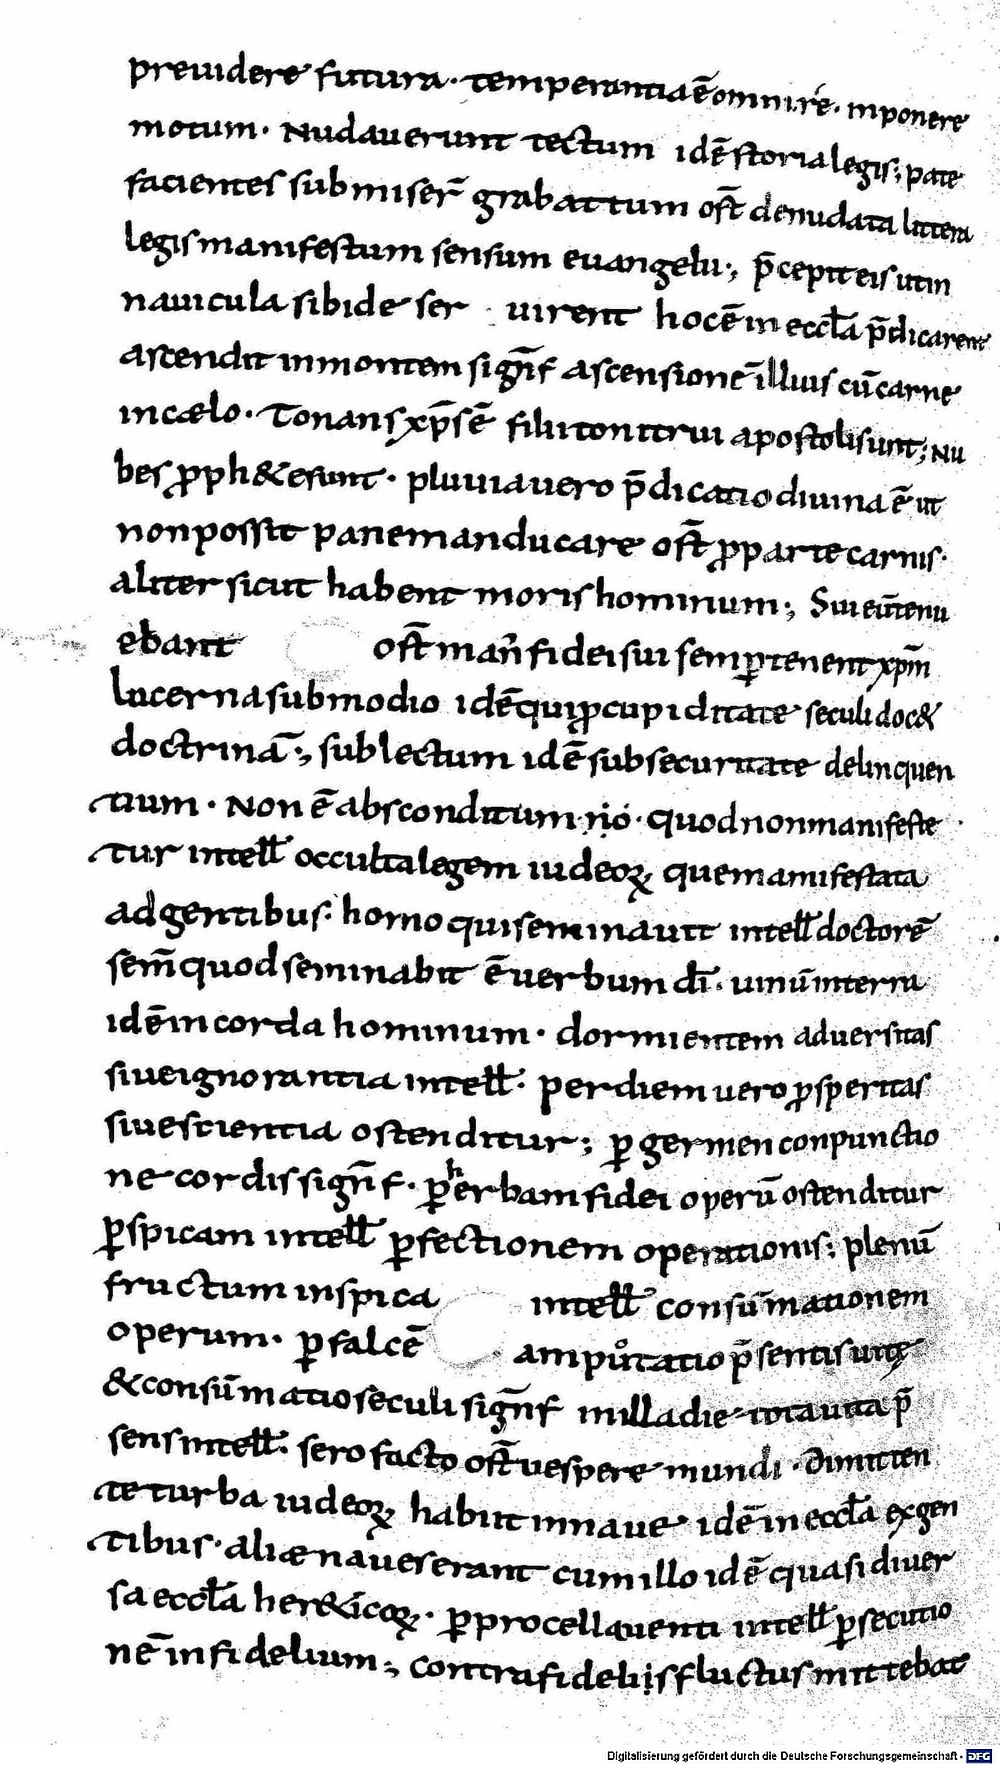 preuidere futura· temperantia ē omni re· inponere
motum· Nudauerunt tectum idē storia legis; pate
facientes submiser̄ grabattum ost̄ denudata littera
legis manifestum sensum euangelii·, p̄cepit eis ut in
nauicula sibi de ser uirent hoc ē in eccl̄a p̄dicarent
ascendit in montem sign̄f ascensionē illius cū carne
in cælo· Tonans xp̄s ē filii tonitrui apostoli sunt; Nu
bes ꝓph&e sunt· pluuia uero p̄dicatio diuina ē ut
non possit pane manducare ost̄ ꝓ parte carnis·
aliter sicut habent moris hominum·, Sui eū tenu
ebant ost̄ man̄ fidei sui semꝑ tenent xp̄m
lucerna sub modio idē qui ꝓ cupiditate seculi doc&
doctrinā·, sub lectum idē sub securitate delinquen
tium· Non ē absconditum· quod non manifeste
tur intell̄ occulta legem iudeoꝝ quem amifestata
ad gentibus· homo qui seminauit intell̄ doctorē
sem̄ quod seminabit ē uerbum dī· in terra
idē in corda hominum· dormientem aduersitas
siue ignorantia intell̄· per diem uero ꝓsperitas
siue scientia ostenditur; ꝑ germen conpunctio
ne cordis sign̄f· ꝑ herbam fidei operū ostenditur
ꝑ spicam intell̄ ꝑfectionem operationis; plenū
fructum in spica intell̄ consūmationem
operum· ꝑ falcē amputatio p̄sentis uitę
& consūmatio seculi sign̄f in illa die tota uita p̄
sens intell̄· sero facto ost̄ uespere mundi· Dimitten
te turba iudeoꝝ habiit in naue idē in eccl̄a ex gen
tibus· aliæ naues erant cum illo idē quasi diuer
sa eccl̄a her&icoꝝ· ꝑ procella uenti intell̄ ꝑsecutio
nē infidelium·, contra fidelis fluctus mittebat
Digitalisierung gefördert durch die Deutsche Forschungsgemeinschaft - DFG